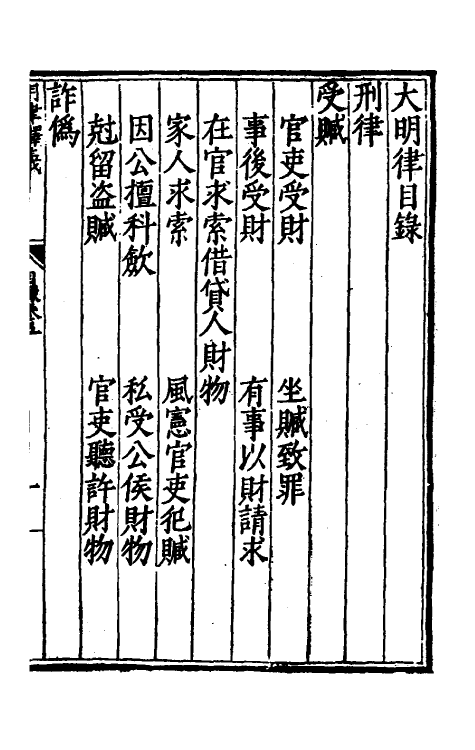 大明律目錄
刑律
受贓
官吏受財 坐贓致罪
事後受財 有事以財請求
在官求索借貸人財物
家人求索 風憲官吏犯贓
因公擅科歛 私受公侯財物
尅留盗贓 官吏聽許財物
詐僞